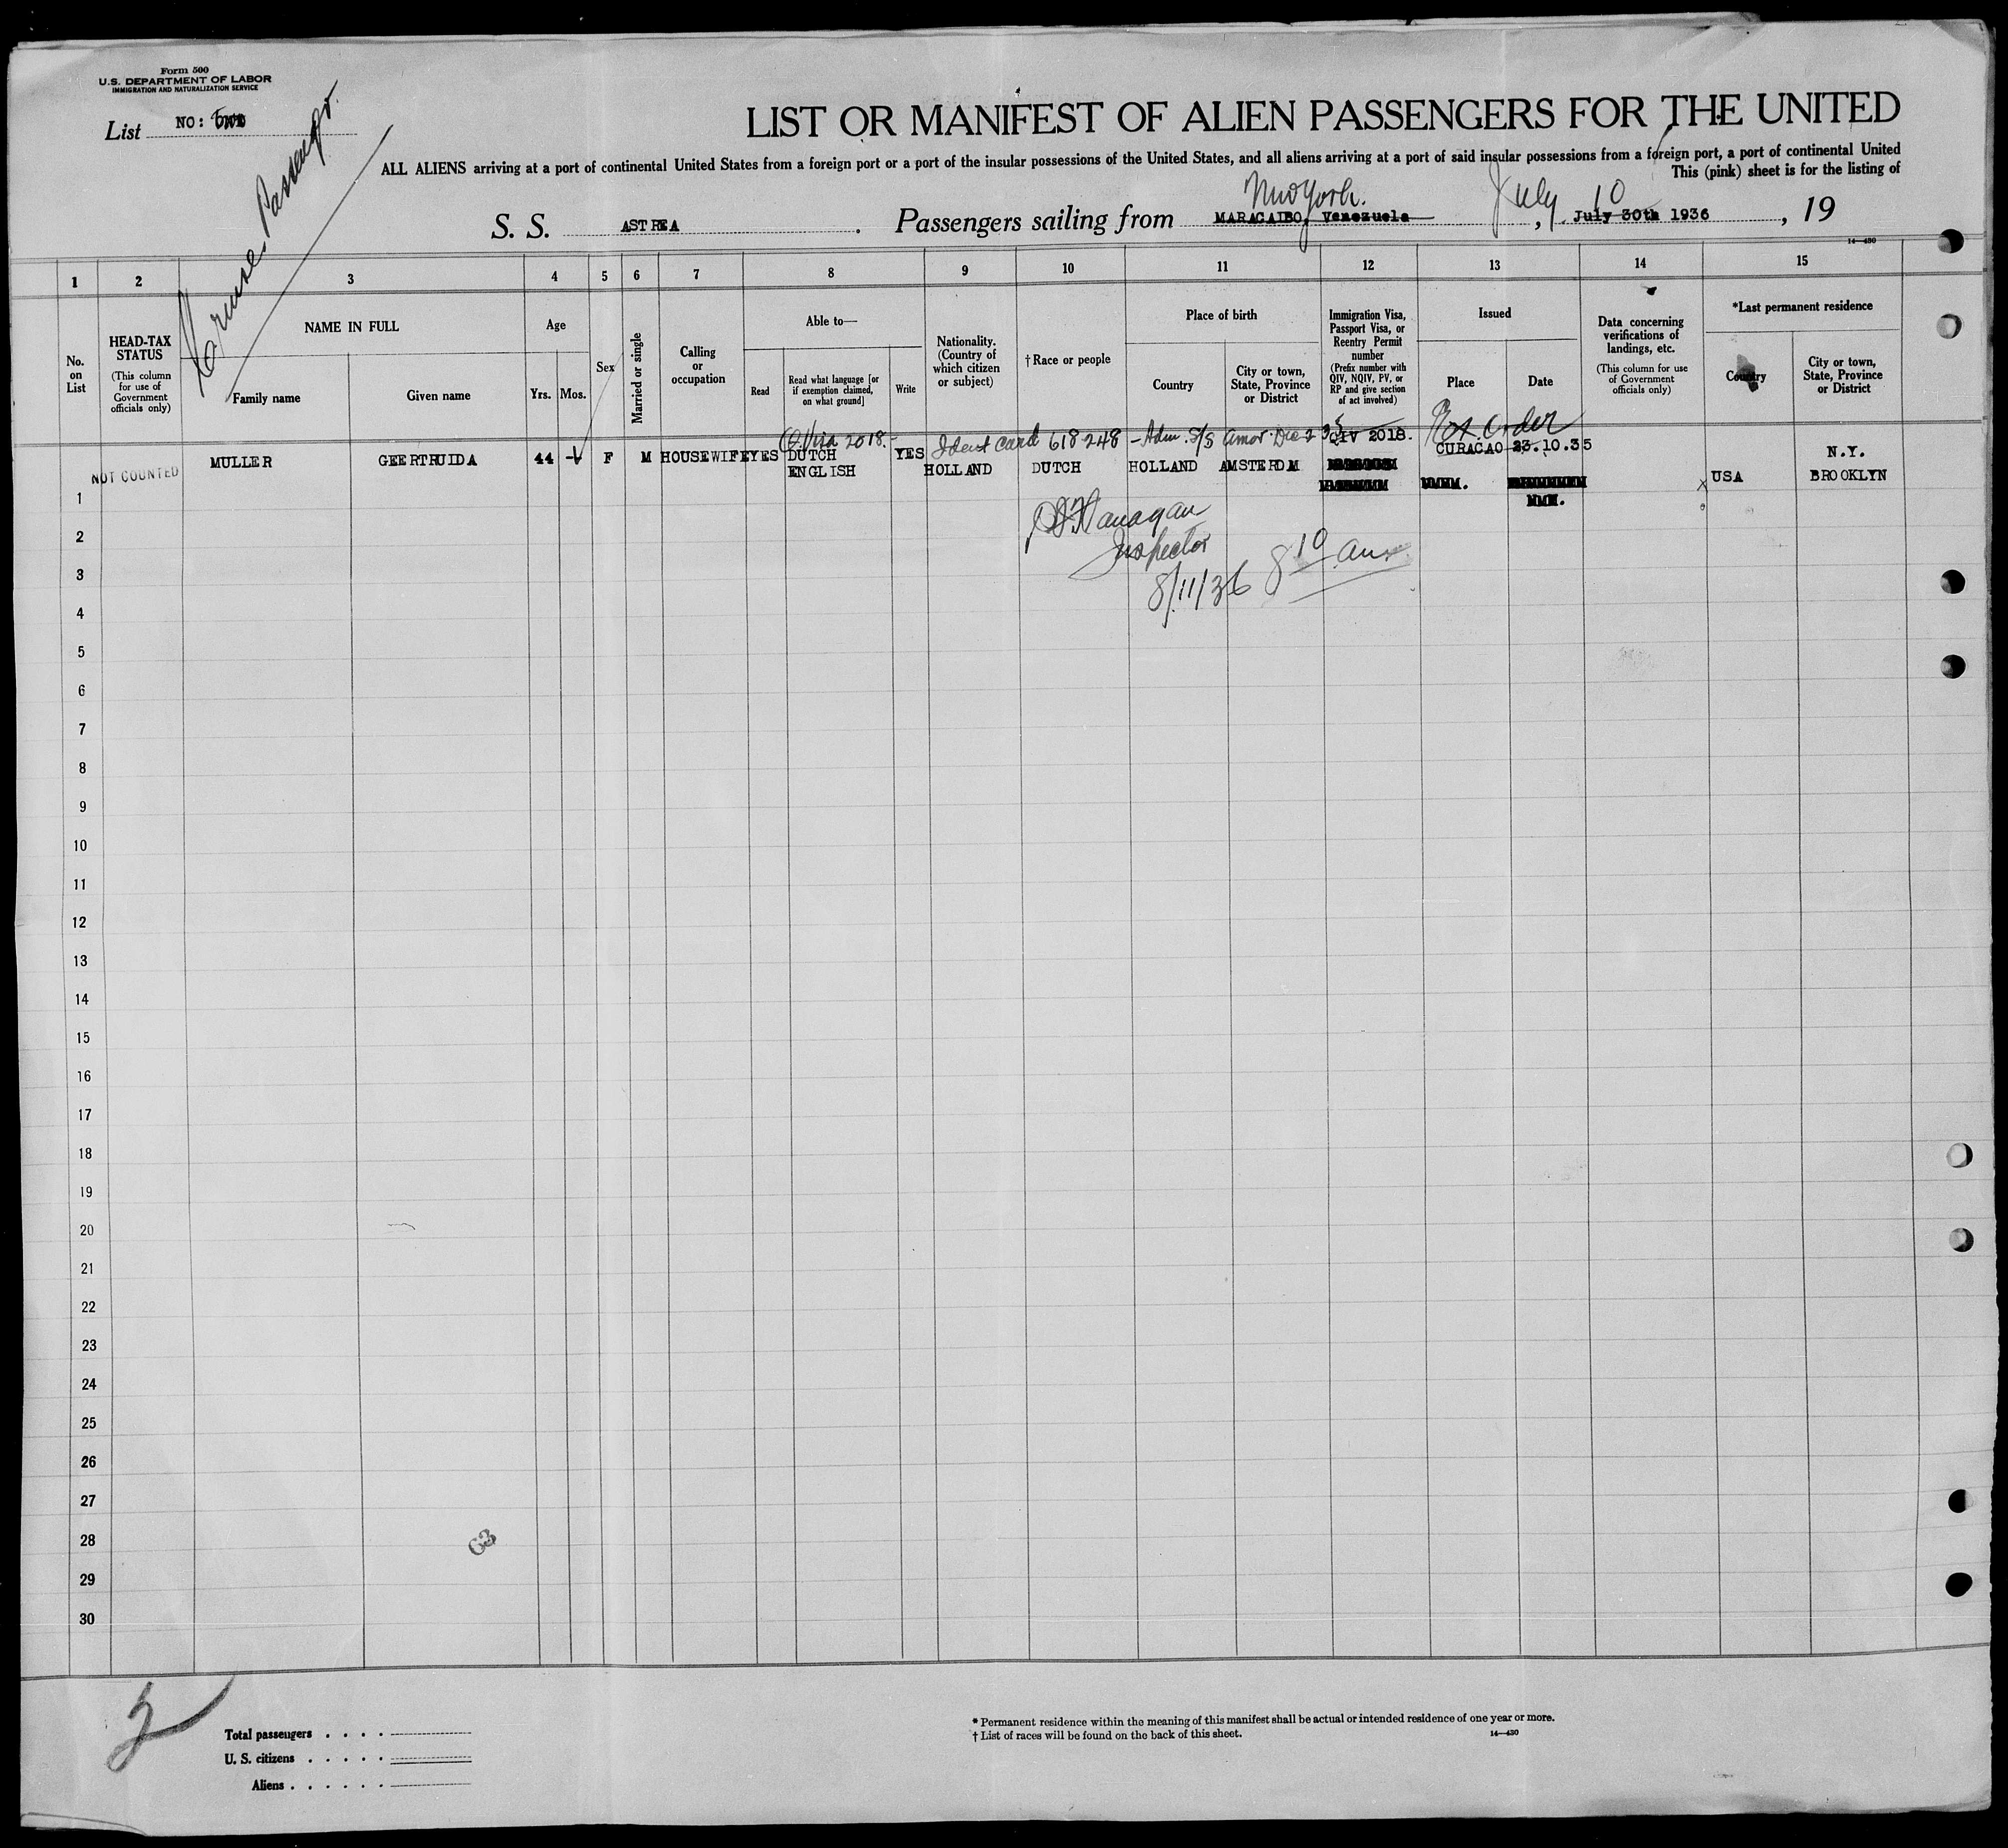 Form 500
U.S. DEPARTMENT OF LABOR
IMMIGRATION AND NATURALIZATION SERVICE
List NO:
Cruise Passengr.
LIST OR MANIFEST OF ALIEN PASSENGERS FOR THE UNITED
ALL ALIENS arriving at a port of continental United States from a foreign port or a port of the insular possessions of the United States, and all aliens arriving at a port of said insular possessions from a foreign port, a port of continental United
This (pink) sheet is for the listing of
New York. July 10
S. S. ASTREA . Passengers sailing from MARACAIBO, Venezuela , July 30th 1936 , 19
14—430
1 2 3 4 5 6 7 8 9 10 11 12 13 14 15
No. on List
HEAD-TAX STATUS
(This column for use of Government officials only)
NAME IN FULL
Family name
Given name
Age
Yrs.
Mos.
Sex
Married or single
Calling or occupation
Able to—
Read
Read what language [or if exemption claimed, on what ground]
Write
Nationality. (Country of which citizen or subject)
†Race or people
Place of birth
Country
City or town, State, Province or District
Immigration Visa, Passport Visa, or Reentry Permit number
(Prefix number with QIV, NQIV, PV, or RP and give section of act involved)
Issued
Place
Date
Data concerning verifications of landings, etc.
(This column for use of Government officials only)
*Last permanent residence
Country
City or town, State, Province or District
Q.Visa 2018. Ident Card 618248 - Adm. S/S Amor Dec 2 35 QIV 2018. Ext. Order
NOT COUNTED
1 MULLER GEERTRUIDA 44 - F M HOUSEWIFE YES DUTCH ENGLISH YES HOLLAND DUTCH HOLLAND AMSTERDM CURACAO 23.10.35 USA N.Y. BROOKLYN
Flanagan
Inspector
8/11/36 8 10 am
2
3
4
5
6
7
8
9
10
11
12
13
14
15
16
17
18
19
20
21
22
23
24
25
26
27
28
29
30
63
2
Total passengers . . . .
U. S. citizens . . . . .
Aliens . . . . . .
* Permanent residence within the meaning of this manifest shall be actual or intended residence of one year or more.
† List of races will be found on the back of this sheet.
14—430